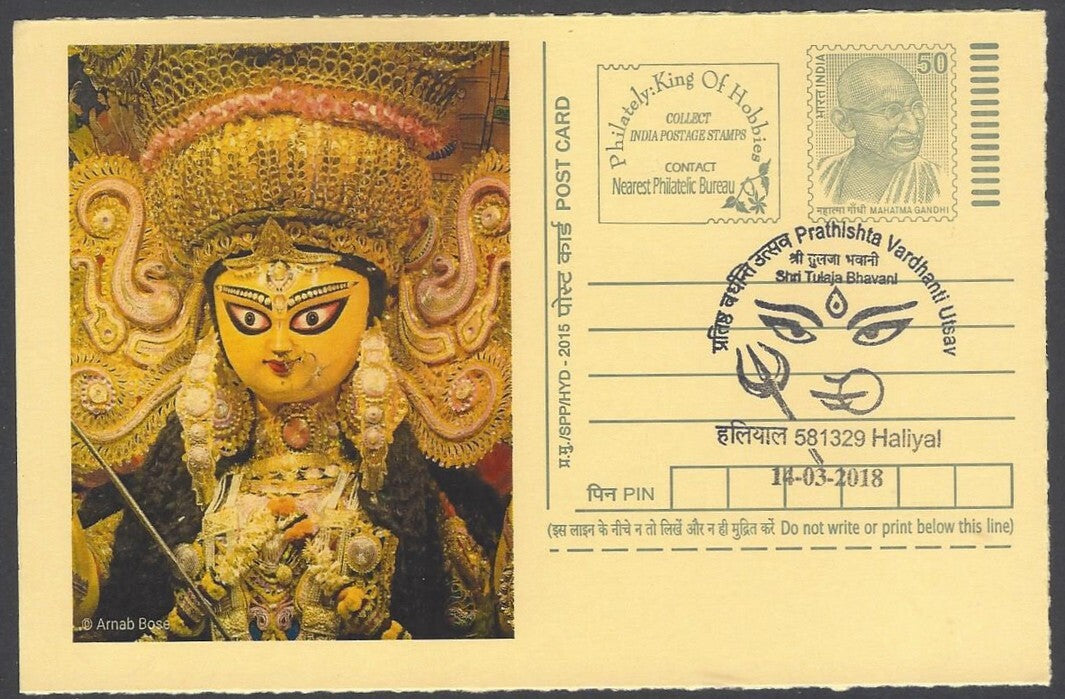 © Arnab Bose
प्र.मु./SPP/HYD - 2015 पोस्ट कार्ड POST CARD
Philately: King Of Hobbies
COLLECT
INDIA POSTAGE STAMPS
CONTACT
Nearest Philatelic Bureau
भारत INDIA
50
महात्मा गाँधी MAHATMA GANDHI
प्रतिष्ठ वर्धन्ति उत्सव Prathishta Vardhanti Utsav
श्री तुलजा भवानी
Shri Tulaja Bhavani
हलियाल 581329 Haliyal
14-03-2018
पिन PIN
(इस लाइन के नीचे न तो लिखें और न ही मुद्रित करें Do not write or print below this line)